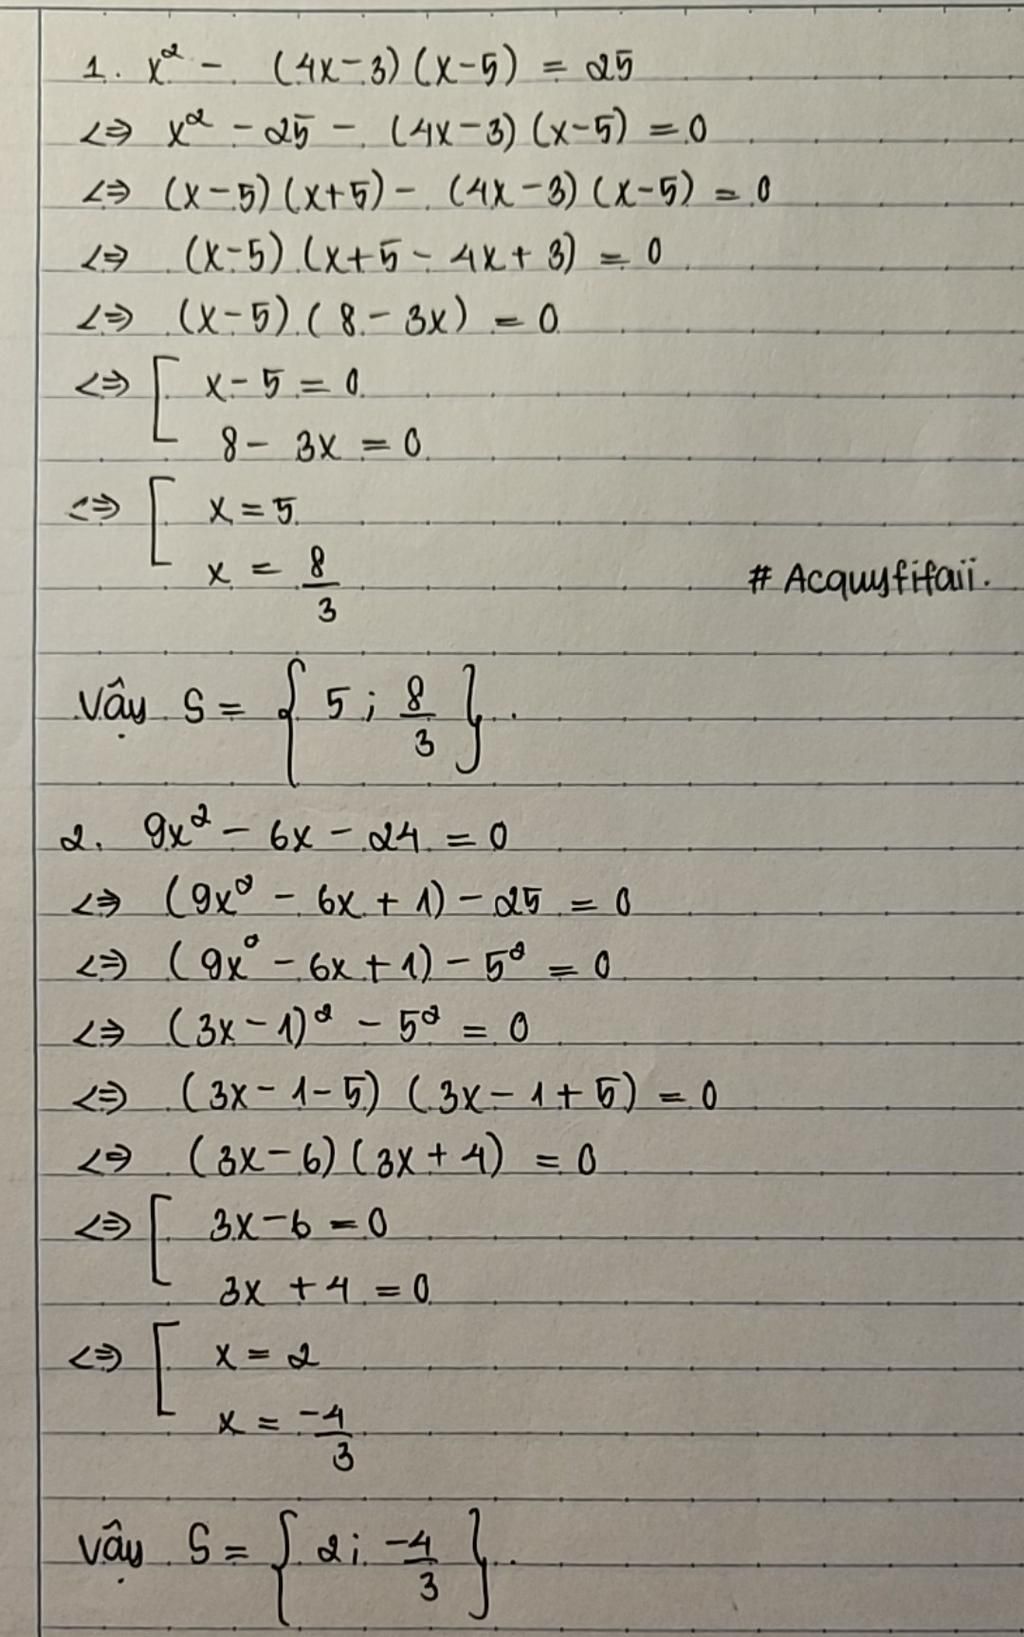 1. x² - (4x-3)(x-5) = 25
<=> x² - 25 - (4x-3)(x-5) = 0
<=> (x-5)(x+5) - (4x-3)(x-5) = 0
<=> (x-5)(x+5-4x+3) = 0
<=> (x-5)(8-3x) = 0
<=> [ x-5 = 0
8 - 3x = 0
<=> [ x = 5
x = 8/3
# Acquyfifaii.
Vậy S = { 5 ; 8/3 }.
2. 9x² - 6x - 24 = 0
<=> (9x² - 6x + 1) - 25 = 0
<=> (9x² - 6x + 1) - 5² = 0
<=> (3x-1)² - 5² = 0
<=> (3x-1-5)(3x-1+5) = 0
<=> (3x-6)(3x+4) = 0
<=> [ 3x-6 = 0
3x + 4 = 0
<=> [ x = 2
x = -4/3
Vậy S = { 2 ; -4/3 }.